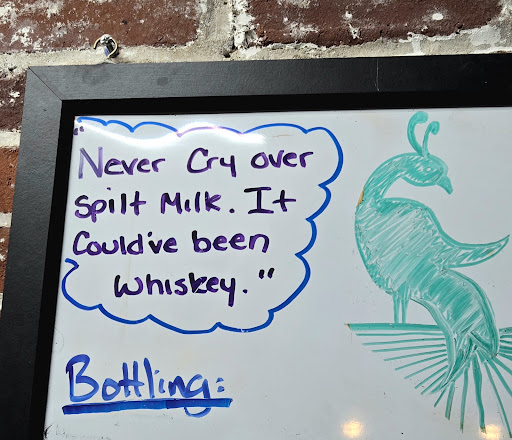 "Never Cry over
spilt Milk. It
Could've been
Whiskey."
Bottling: